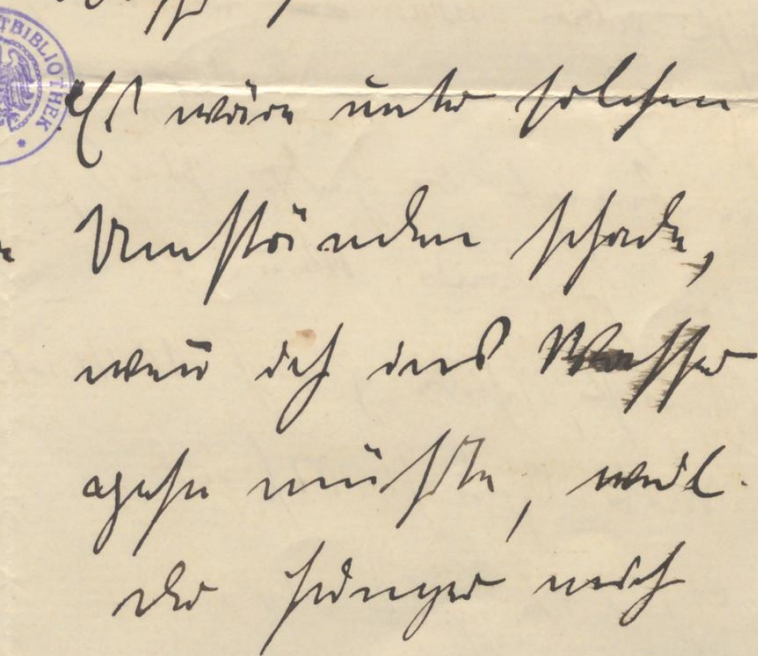 TBIBLIOTHEK
Es wäre unter solchen
Umständen schade,
wen̄ ich ins Wasser
gehn müßte, weil
der Hunger mich